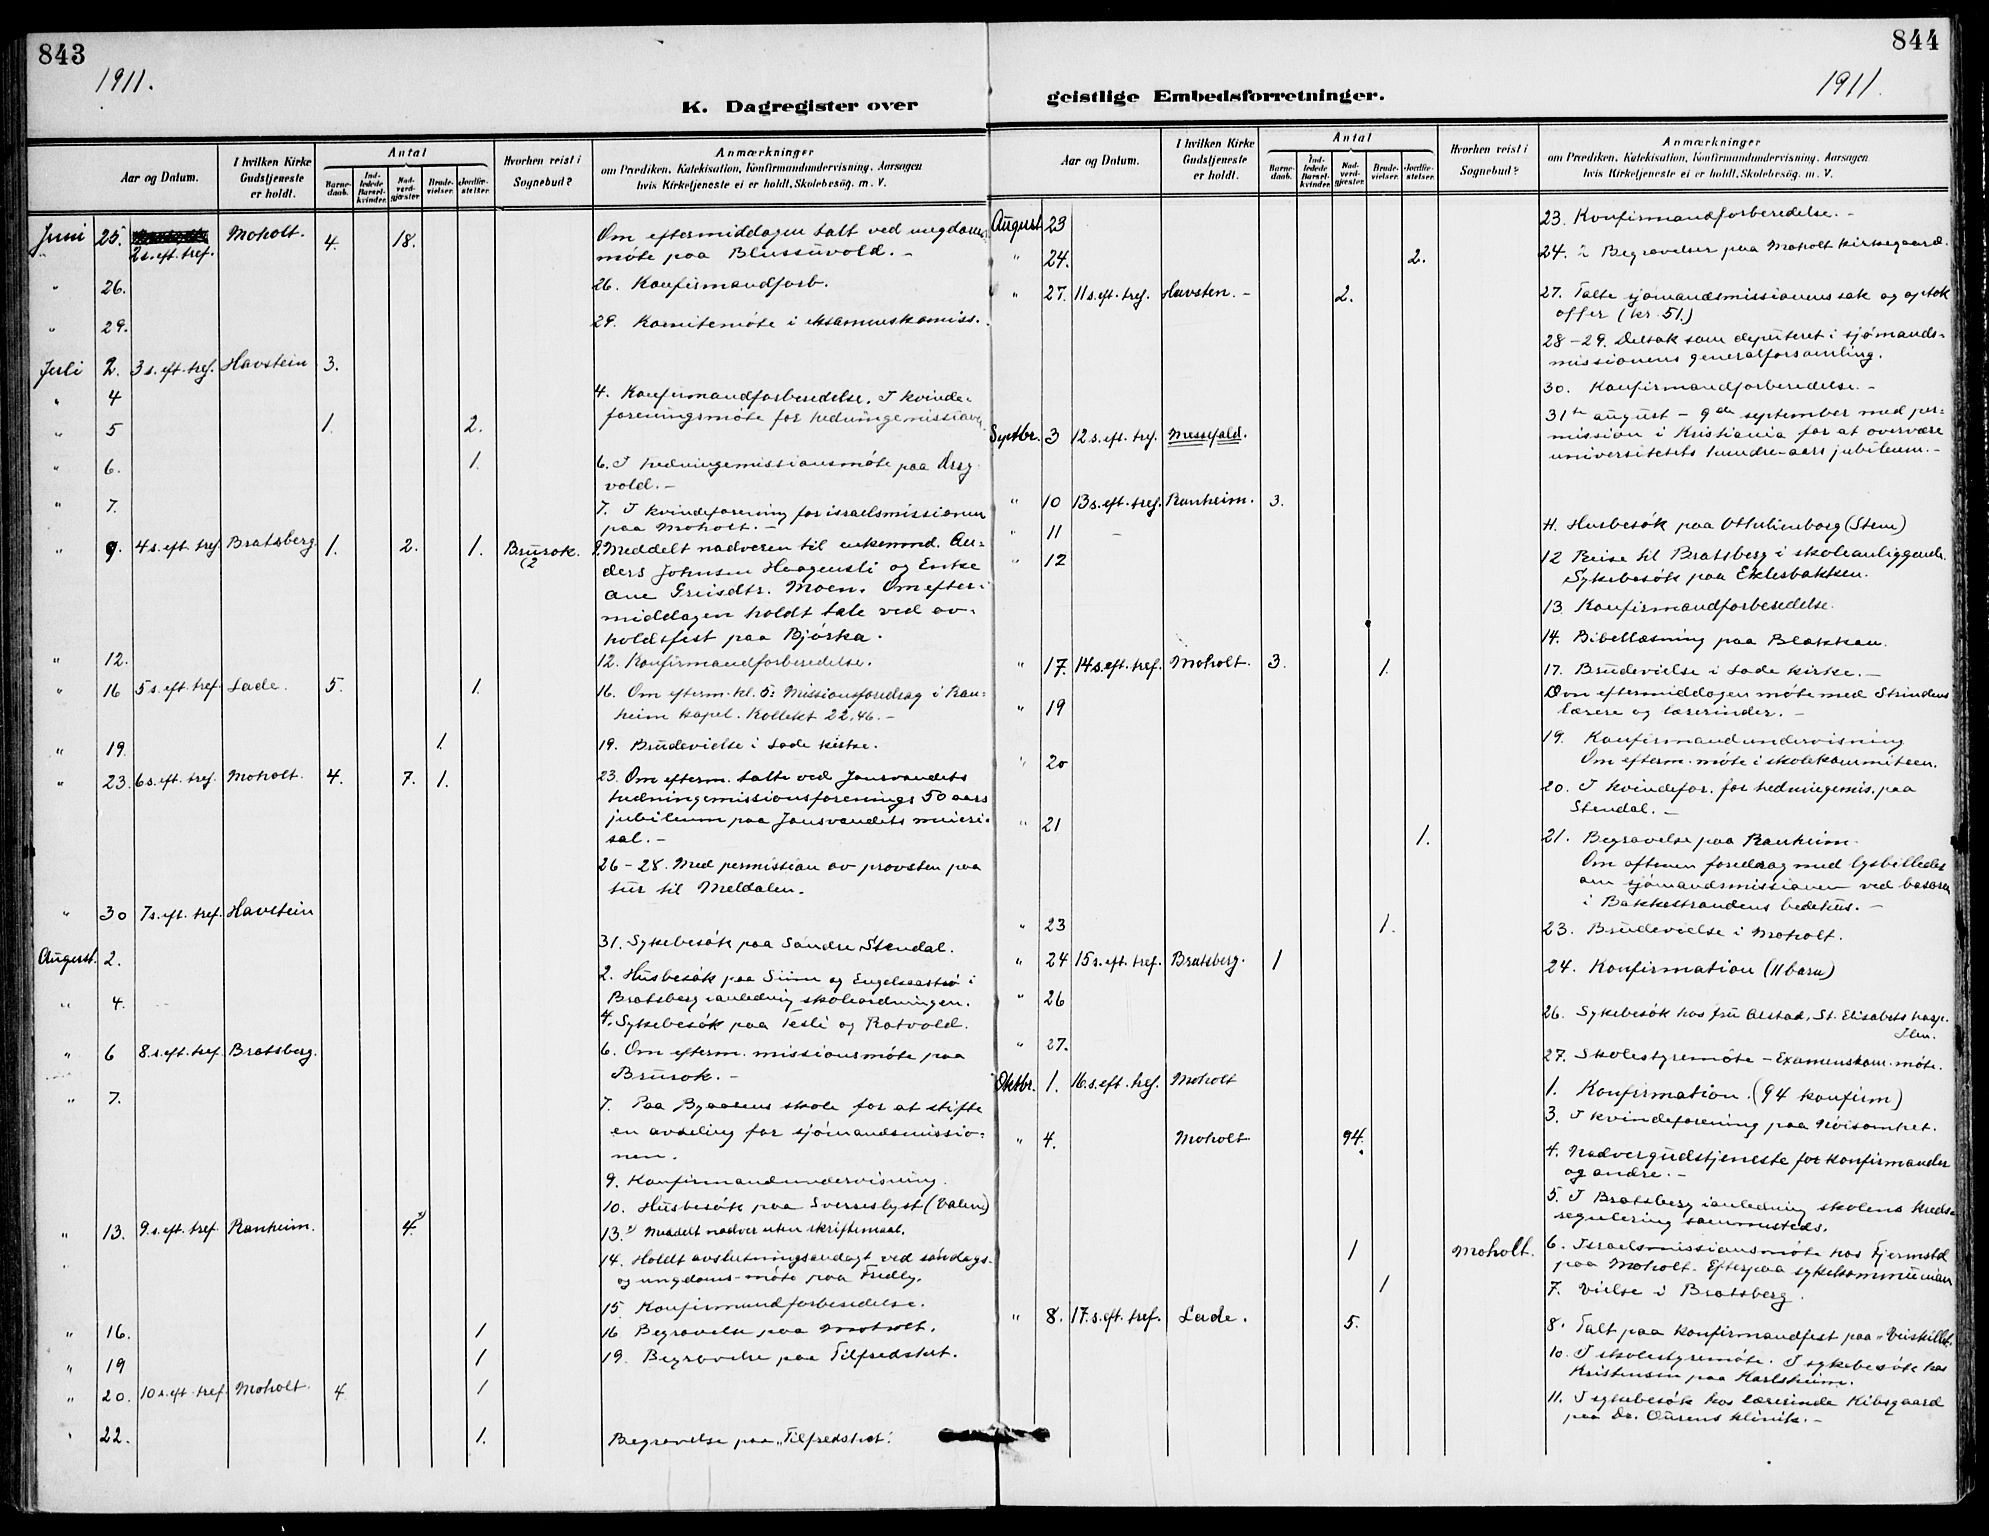 843
1911.
K. Dagregister over
Aar og Datum.
I hvilken Kirke Gudstjeneste er holdt.
Antal
Barne-daab.
Ind-ledede Barsel-kvinder.
Nad-verd-gjæster.
Brude-vielser.
Jordfæ-stelser.
Hvorhen reist i Sognebud?
Anmærkninger
om Prædiken, Katekisation, Konfirmandundervisning, Aarsagen
hvis Kirketjeneste ei er holdt, Skolebesøg, m. V.
Juni 25. 2 s. eft. tref. Moholt. 4. 18. Om eftermiddagen talt ved ungdoms-
møte paa Blussuvold. -
" 26. 26. Konfirmandforb.
" 29. 29. Komitemøte i eksamenskomiss.
Juli 2. 3 s. eft. tref. Havstein 3.
" 4 4. Konfirmandforberedelse. I kvinde-
foreningsmøte for hedningemissionen.
" 5 1. 2.
" 6. 1. 6. I hedningemissionsmøte paa Drag-
vold. -
" 7. 7. I kvindeforening for israelsmissionen
paa Moholt. -
" 9. 4 s. eft. tref. Bratsberg 1. 2. 1. Brurok. (2 9. Meddelt nadveren til enkemnd. An-
ders Johnsen Haagensli og Enke
Ane Moen. Om efter-
middagen holdt tale ved av-
holdsfest paa Bjørka.
" 12. 12. Konfirmandforberedelse.
" 16 5 s. eft. tref. Lade. 5. 1. 16. Om efterm. kl. 5: Missionsforedrag i Ran-
heim kapel. Kollekt 22,46. -
" 19. 1. 19. Brudevielse i Lade kirke.
" 23. 6 s. eft. tref. Moholt. 4. 7. 1. 23. Om efterm. talte ved Jonsvandets
hedningemissionsforenings 50 aars
jubileum paa Jonsvandets
sal. -
26-28. Med permission av provsten paa
tur til Meldalen.
" 30 7 s. eft. tref. Havstein
31. Sykebesøk paa Søndre Stendal.
August. 2. 2. Husbesøk paa Siim og Engelsaastrø i
Bratsberg i anledning skoleordningen.
" 4. 4. Sykebesøk paa Tesli og Rotvold.
" 6 8. s. eft. tref. Bratsberg. 6. Om efterm. missionsmøte paa
Brurok. -
" 7. 7. Paa Byaasens skole for at stifte
en avdeling for sjømandsmissio-
nen.
9. Konfirmandundervisning.
10. Husbesøk paa Sverreslyst (Valen)
" 13. 9. s. eft. tref. Ranheim. 4. 13. Meddelt nadver uten skriftemaal.
14. Holdt avslutningsandagt ved søndags-
og ungdoms-møte paa Fredly.
15 Konfirmandforberedelse.
" 16. 1 16 Begravelse paa Moholt.
" 19 1 19. Begravelse paa Tilfredshet.
" 20. 10 s. eft. tref. Moholt. 4. 1
" 22. 1. Begravelse paa "Tilfredshet".
844
1911.
geistlige Embedsforretninger.
Aar og Datum.
I hvilken Kirke Gudstjeneste er holdt.
Antal
Barne-daab.
Ind-ledede Barsel-kvinder.
Nad-verd-gjæster.
Brude-vielser.
Jordfæ-stelser.
Hvorhen reist i Sognebud?
Anmærkninger
om Prædiken, Katekisation, Konfirmandundervisning, Aarsagen
hvis Kirketjeneste ei er holdt, Skolebesøg, m. V.
August 23 23. Konfirmandforberedelse. -
" 24. 2. 24. 2 Begravelser paa Moholt kirkegaard.
" 27. 11 s. eft. tref. Havsten. - 2. 27. Talte sjømandsmissionens sak og optok
offer (kr. 51.)
28-29. Deltok som deputeret i sjømands-
missionens generalforsamling.
30. Konfirmandforberedelse. -
31te august - 9de september med per-
mission i Kristiania for at overvære
universitetets hundre-aars jubileum. -
Septbr. 3 12 s. eft. tref. Messefald.
" 10 13 s. eft. tref. Ranheim. 3.
" 11 11. Husbesøk paa Othilienborg (Stene)
" 12 12 Reise til Bratsberg i skoleanliggende.
Sykebesøk paa Eklesbakken.
13 Konfirmandforberedelse.
14. Bibellæsning paa Blakkan.
" 17. 14 s. eft. tref. Moholt. 3. 1. 17. Brudevielse i Lade kirke. -
Om eftermiddagen møte med Strindens
lærere og lærerinder. -
" 19 19. Konfirmandundervisning
Om efterm. møte i skolekommiteen.
" 20 20. I kvindefor. for hedningemis. paa
Stendal. -
" 21 1. 21. Begravelse paa Ranheim.
Om aftenen foredrag med lysbilleder
om sjømandsmissionen ved basaren
i Bakkestrandens bedehus. -
" 23 1. 23. Brudevielse i Moholt.
" 24 15 s. eft. tref. Bratsberg. 1 24. Konfirmation (11 barn)
" 26 26. Sykebesøk hos fru Alstad, St. Elisabets hosp.
Ilen.
" 27. 27. Skolestyremøte - Examenskom. møte.
Oktbr. 1. 16. s. eft. tref. Moholt 1. Konfirmation. (94 konfirm)
3. I kvindeforening paa Nøisomhet.
" 4. Moholt 94. 4. Nadvergudstjeneste for konfirmander
og andre. -
5. I Bratsberg i anledning skolens kreds-
regulering sammesteds.
1 Moholt. 6. Israelsmissionsmøte hos Fjermstad
paa Moholt. Efterpaa sykekommunion
1 7. Vielse i Bratsberg.
" 8. 17. s. eft. tref. Lade. 5. 8. Talt paa konfirmandfest paa "Veiskillet".
10. I skolestyremøte. I sykebesøk hos
Kristensen paa Karlsheim.
11. I sykebesøk hos lærerinde Kibsgaard
paa Dr. Ourens klinik. -